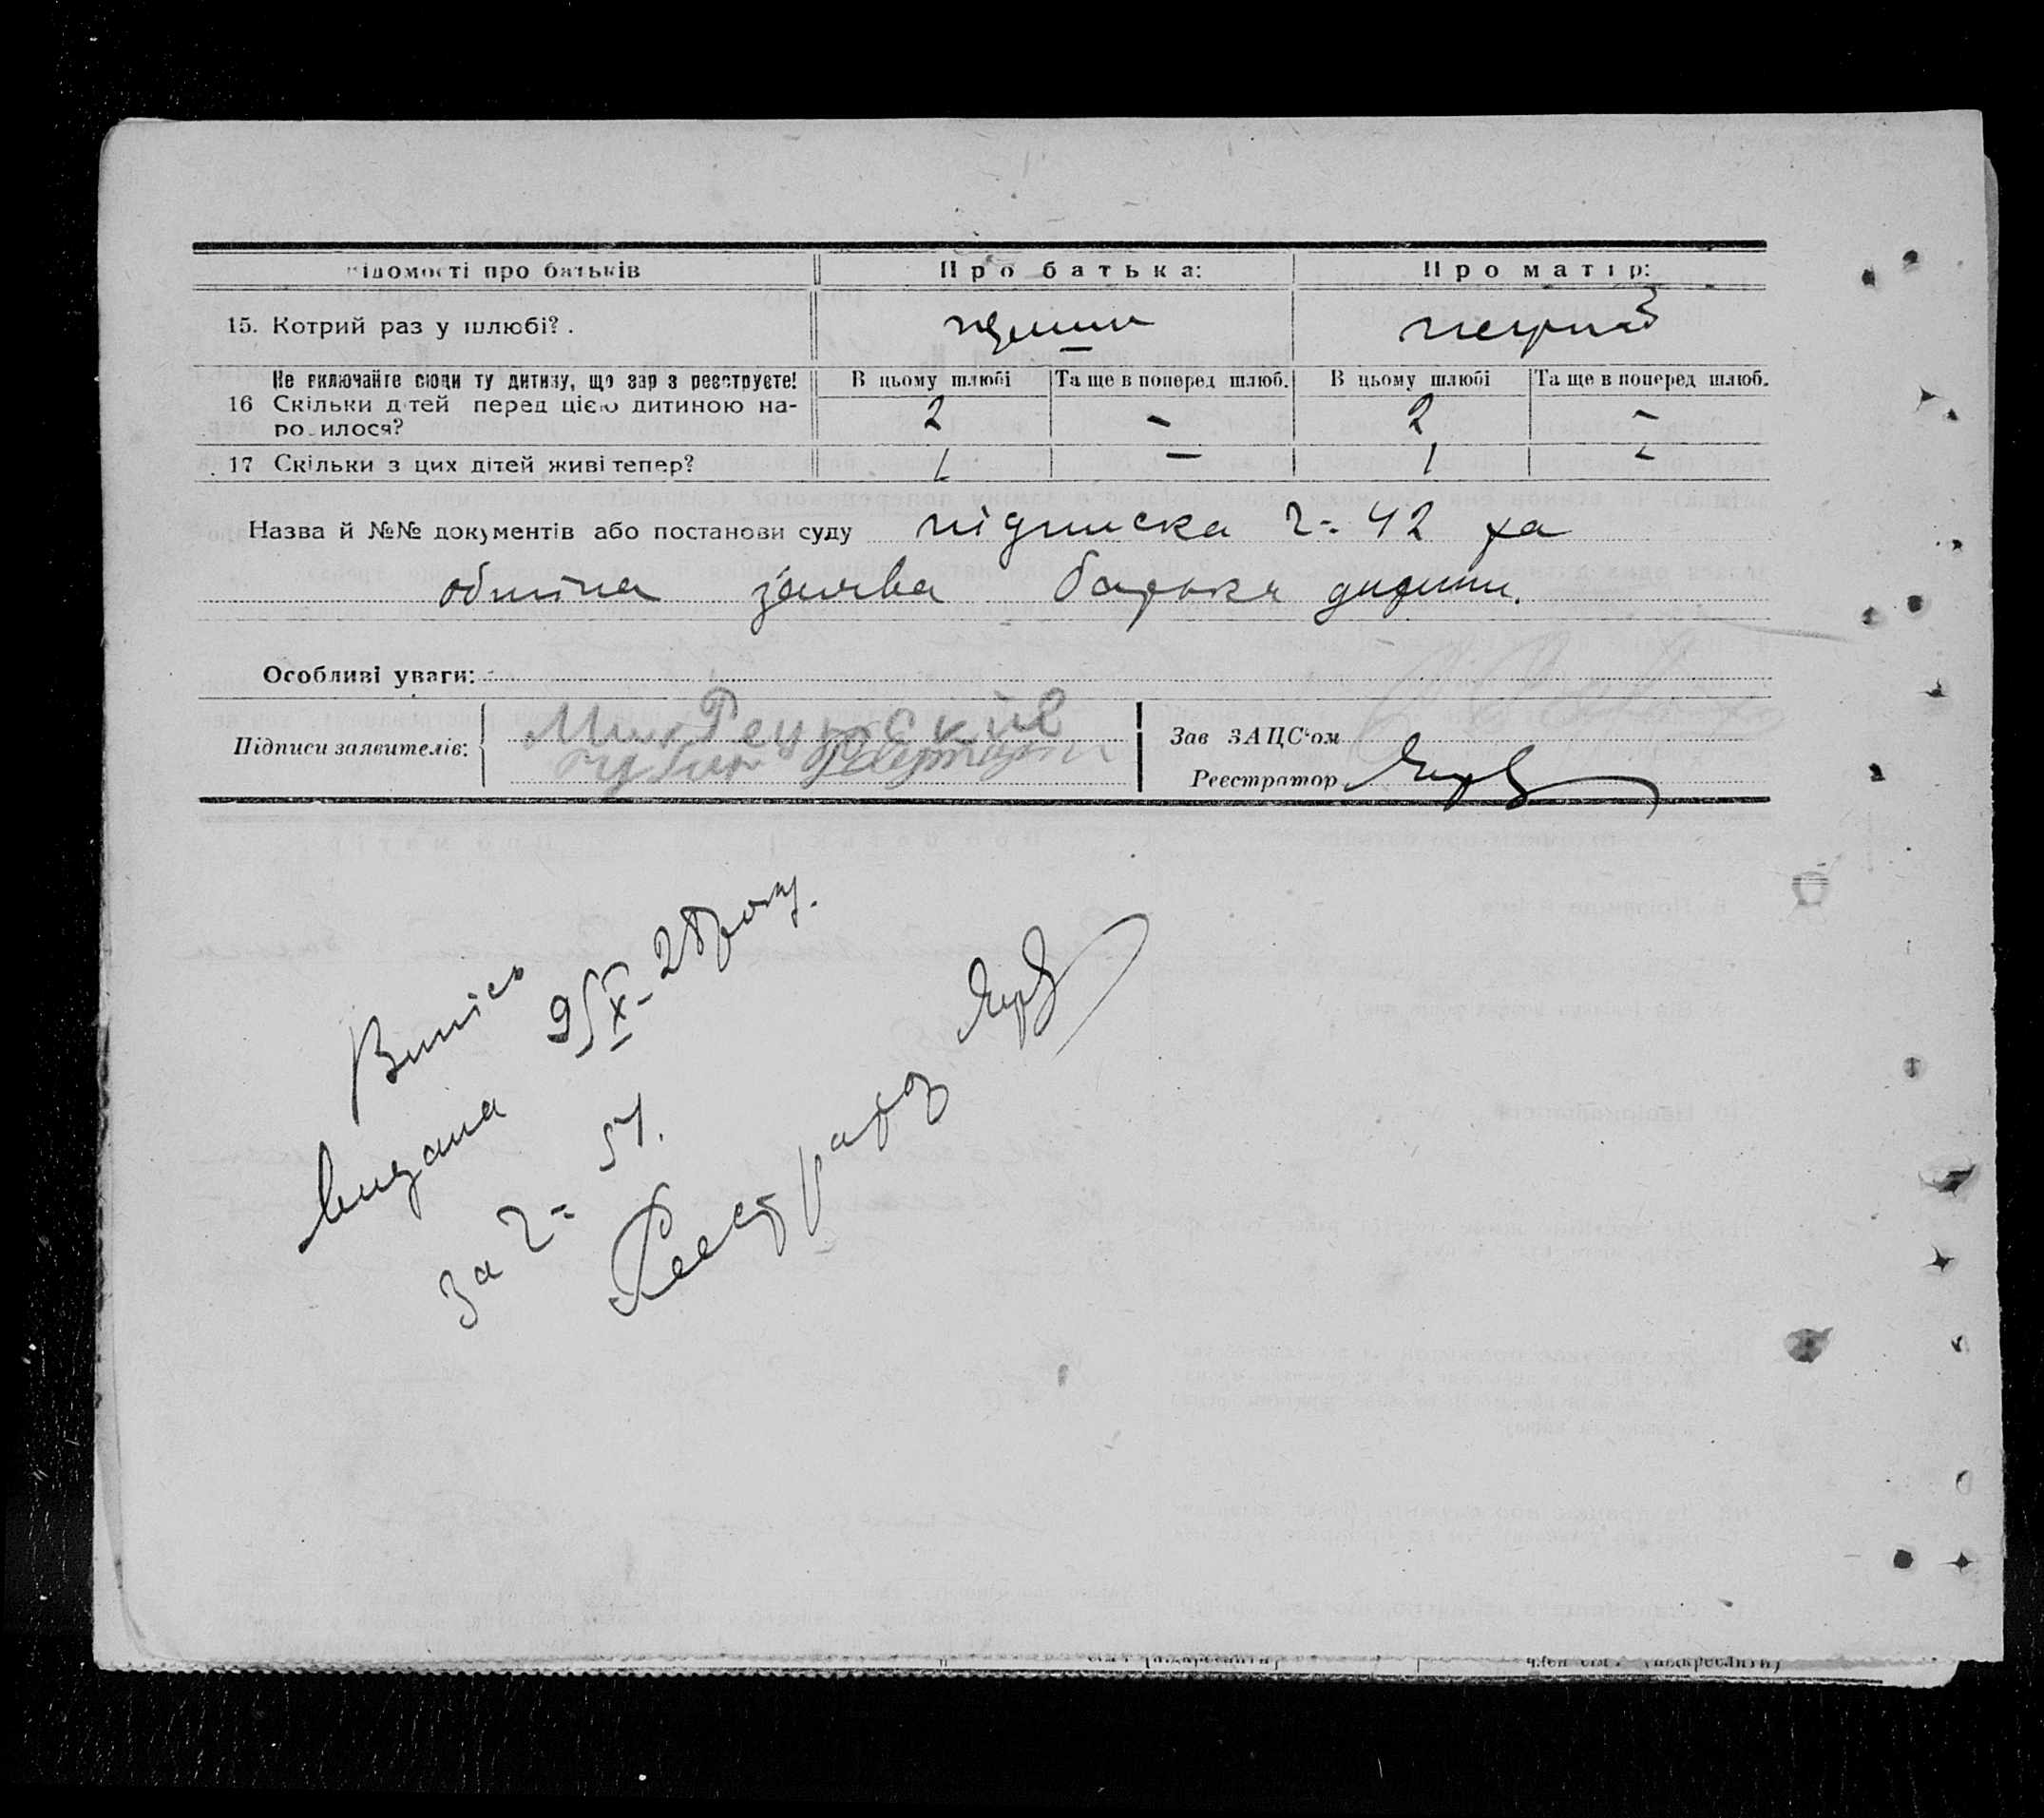 відомості про батьків
Про батька:
Про матір:
15. Котрий раз у шлюбі?.
перший
Не включайте сюди ту дитину, що зараз реєструєте!
В цьому шлюбі
Та ще в поперед шлюб.
В цьому шлюбі
Та ще в поперед шлюб.
16 Скільки дітей перед цією дитиною на-
родилося?
2
-
2
-
17 Скільки з цих дітей живі тепер?
1
-
1
-
Назва й №№ документів або постанови суду підписка ч= 42 та
заява батька дитини.
Особливі уваги:
Підписи заявителів:
Зав ЗАЦС'ом
Реєстратор
Випись
видана 9/X-28 року.
за ч= 57.
Реєстратор